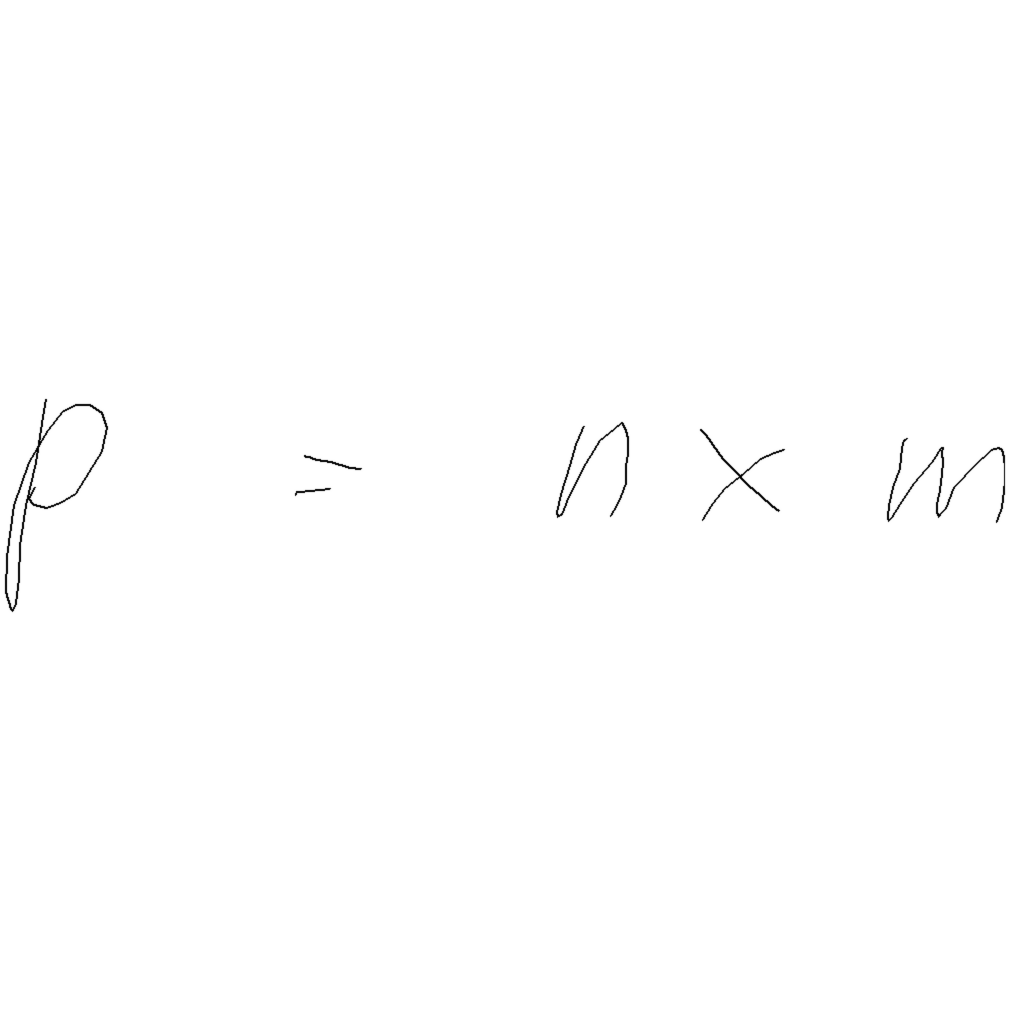 p = n × m